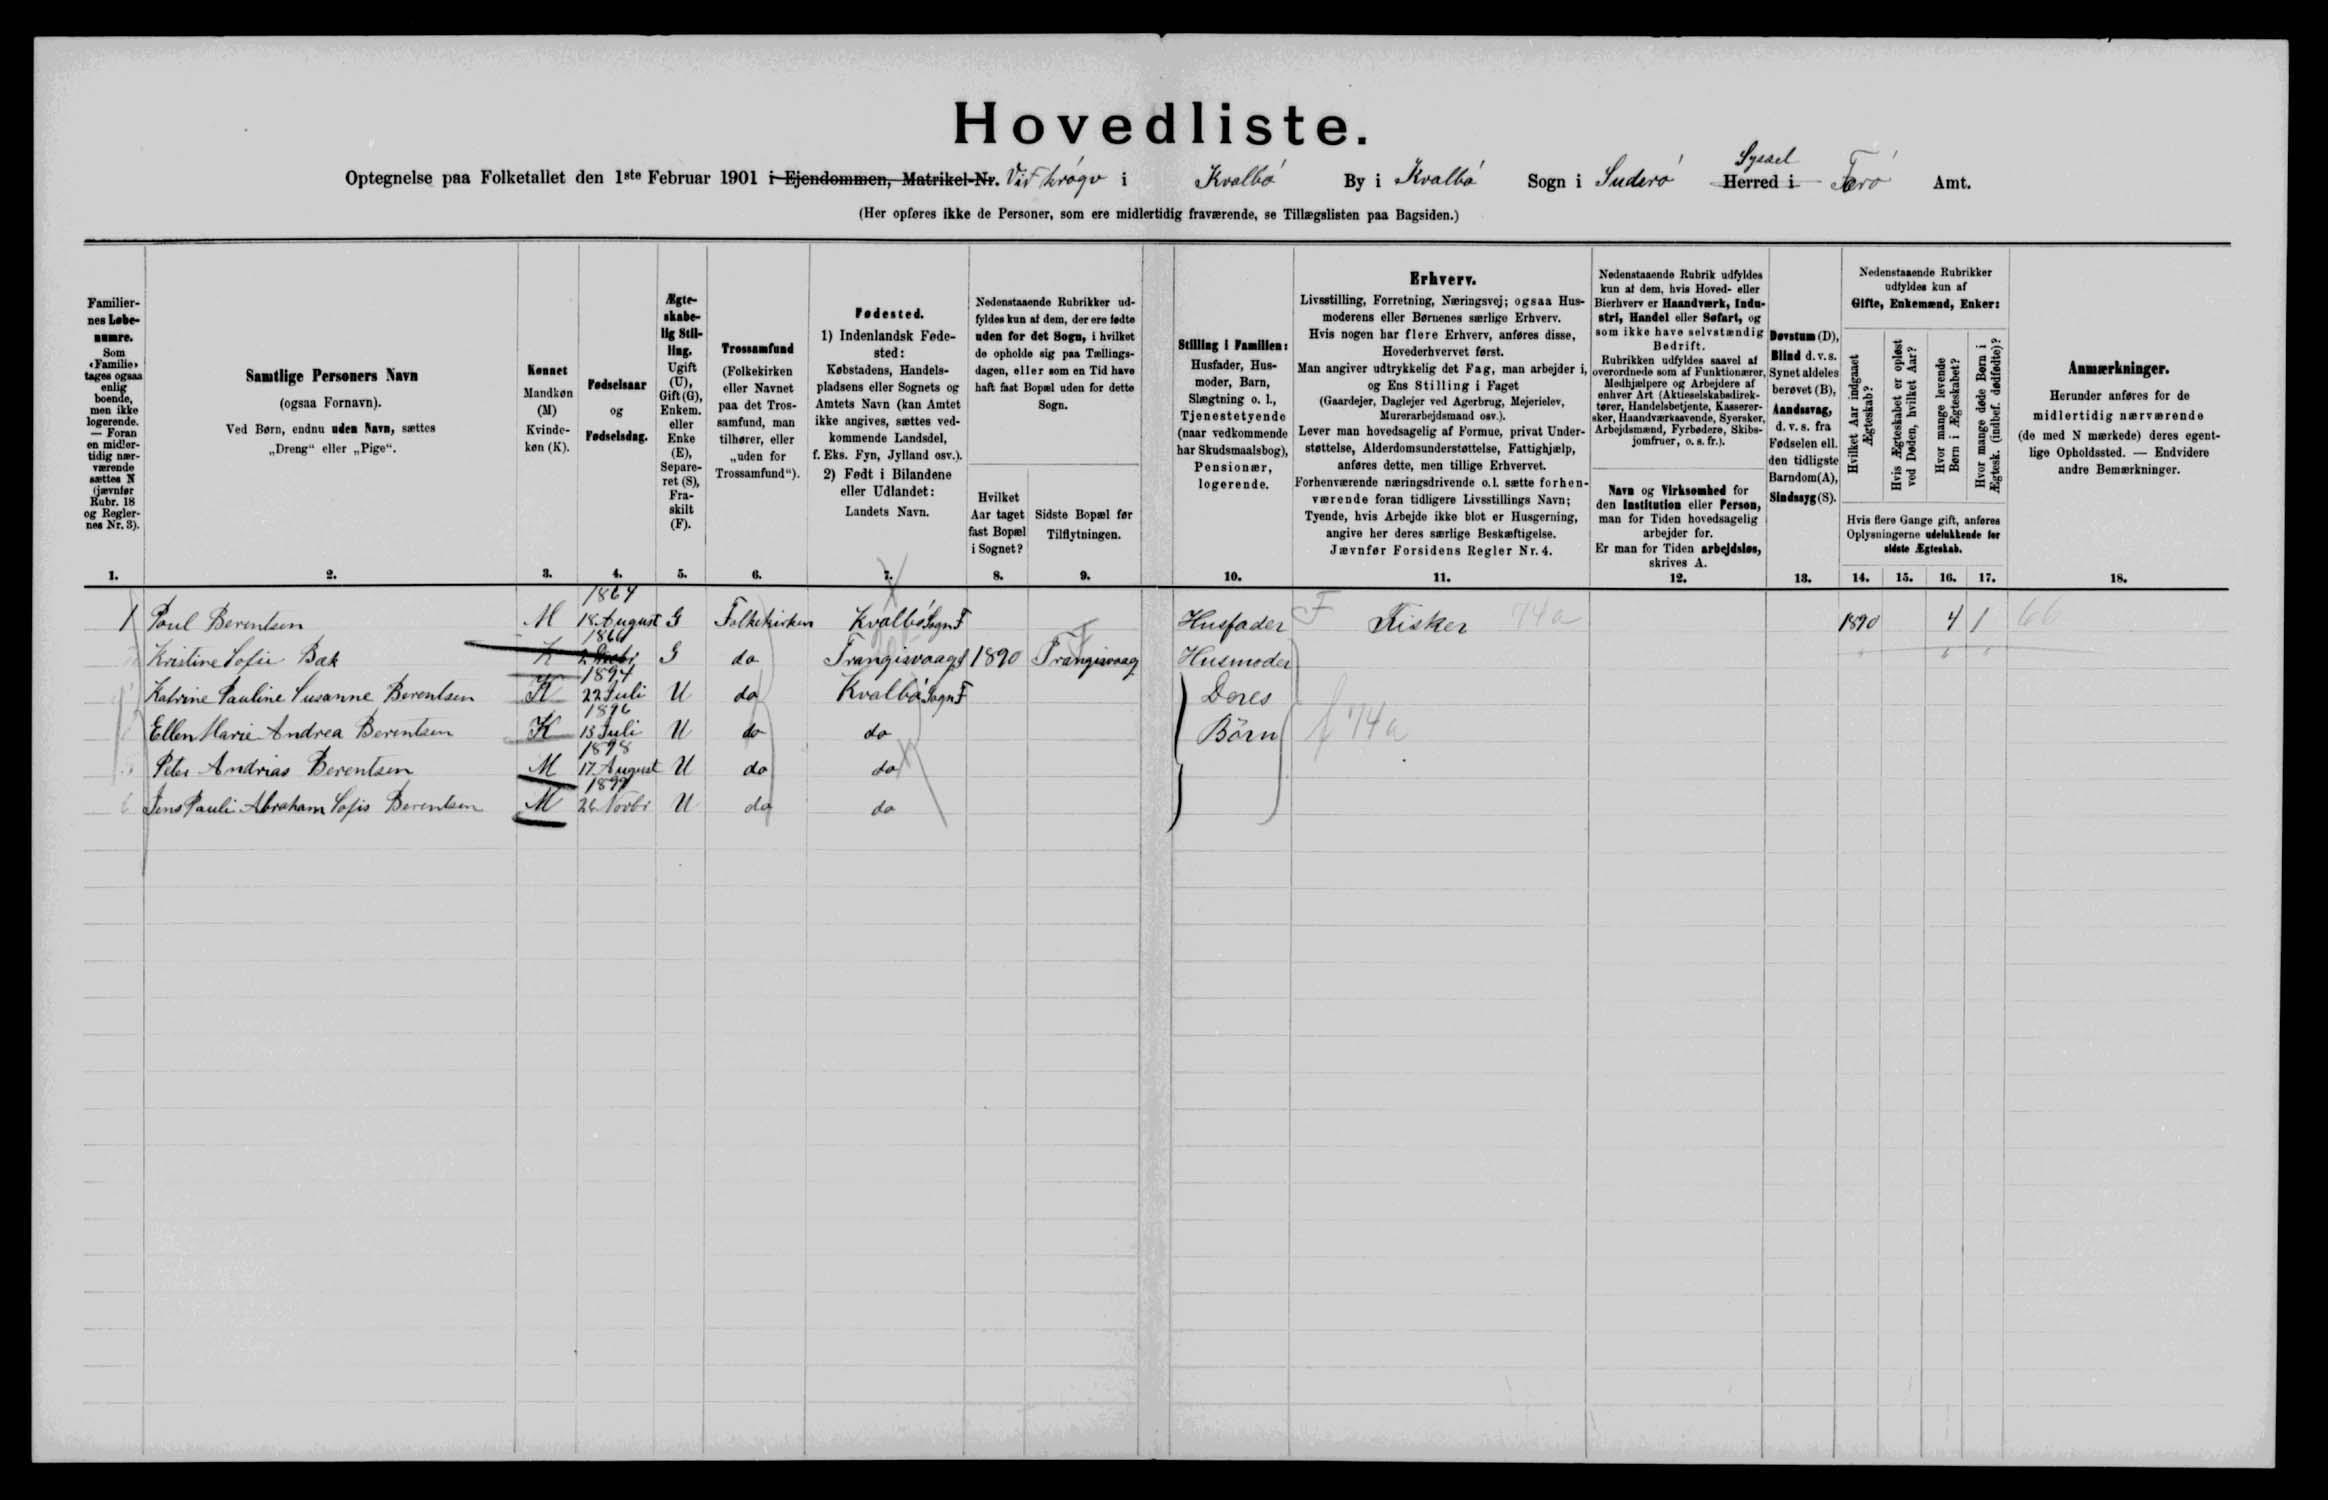 Hovedliste.
Optegnelse paa Folketallet den 1ste Februar 1901 i Ejendommen, Matrikel-Nr. Við krógv i Kvalbó By i Kvalbó Sogn i Suderó Syssel Herred i Færó Amt.
(Her opføres ikke de Personer, som ere midlertidig fraværende, se Tillægslisten paa Bagsiden.)
Familier-
nes Løbe-
numre.
Som
«Familie»
tages ogsaa
enlig
boende,
men ikke
logerende.
— Foran
en midler-
tidig nær-
værende
sættes N
(jævnfør
Rubr. 18
og Regler-
nes Nr. 3).
1.
Samtlige Personers Navn
(ogsaa Fornavn).
Ved Børn, endnu uden Navn, sættes
„Dreng“ eller „Pige“.
2.
Kønnet
Mandkøn
(M)
Kvinde-
køn (K).
3.
Fødselsaar
og
Fødselsdag.
4.
Ægte-
skabe-
lig Stil-
ling.
Ugift
(U),
Gift (G),
Enkem.
eller
Enke
(E),
Separe-
ret (S),
Fra-
skilt
(F).
5.
Trossamfund
(Folkekirken
eller Navnet
paa det Tros-
samfund, man
tilhører, eller
„uden for
Trossamfund“).
6.
Fødested.
1) Indenlandsk Føde-
sted:
Købstadens, Handels-
pladsens eller Sognets og
Amtets Navn (kan Amtet
ikke angives, sættes ved-
kommende Landsdel,
f. Eks. Fyn, Jylland osv.).
2) Født i Bilandene
eller Udlandet:
Landets Navn.
7.
Nedenstaaende Rubrikker ud-
fyldes kun af dem, der ere fødte
uden for det Sogn, i hvilket
de opholde sig paa Tællings-
dagen, eller som en Tid have
haft fast Bopæl uden for dette
Sogn.
Hvilket
Aar taget
fast Bopæl
i Sognet?
8.
Sidste Bopæl før
Tilflytningen.
9.
Stilling i Familien:
Husfader, Hus-
moder, Barn,
Slægtning o. l.,
Tjenestetyende
(naar vedkommende
har Skudsmaalsbog),
Pensionær,
logerende.
10.
Erhverv.
Livsstilling, Forretning, Næringsvej; ogsaa Hus-
moderens eller Børnenes særlige Erhverv.
Hvis nogen har flere Erhverv, anføres disse,
Hovederhvervet først.
Man angiver udtrykkelig det Fag, man arbejder i,
og Ens Stilling i Faget
(Gaardejer, Daglejer ved Agerbrug, Mejerielev,
Murerarbejdsmand osv.).
Lever man hovedsagelig af Formue, privat Under-
støttelse, Alderdomsunderstøttelse, Fattighjælp,
anføres dette, men tillige Erhvervet.
Forhenværende næringsdrivende o.l. sætte forhen-
værende foran tidligere Livsstillings Navn;
Tyende, hvis Arbejde ikke blot er Husgerning,
angive her deres særlige Beskæftigelse.
Jævnfør Forsidens Regler Nr. 4.
11.
Nedenstaaende Rubrik udfyldes
kun af dem, hvis Hoved- eller
Bierhverv er Haandværk, Indu-
stri, Handel eller Søfart, og
som ikke have selvstændig
Bedrift.
Rubrikken udfyldes saavel af
overordnede som af Funktionærer,
Medhjælpere og Arbejdere af
enhver Art (Aktieselskabsdirek-
tører, Handelsbetjente, Kasserer-
sker, Haandværkssvende, Syersker,
Arbejdsmænd, Fyrbødere, Skibs-
jomfruer, o. s. fr.).
Navn og Virksomhed for
den Institution eller Person,
man for Tiden hovedsagelig
arbejder for.
Er man for Tiden arbejdsløs,
skrives A.
12.
Døvstum (D),
Blind d. v. s.
Synet aldeles
berøvet (B),
Aandssvag,
d. v. s. fra
Fødselen ell.
den tidligste
Barndom (A),
Sindssyg (S).
13.
Nedenstaaende Rubrikker
udfyldes kun af
Gifte, Enkemænd, Enker:
Hvilket Aar indgaaet
Ægteskab?
Hvis Ægteskabet er opløst
ved Døden, hvilket Aar?
Hvor mange levende
Børn i Ægteskabet?
Hvor mange døde Børn i
Ægtesk. (indbef. dødfødte)?
Hvis flere Gange gift, anføres
Oplysningerne udelukkende for
sidste Ægteskab.
14. 15. 16. 17.
Anmærkninger.
Herunder anføres for de
midlertidig nærværende
(de med N mærkede) deres egent-
lige Opholdssted. — Endvidere
andre Bemærkninger.
18.
1864
1 Poul Berentsen M 18. August G Folkekirken Kvalbó Sogn F Husfader F Fisker 74a 1890 4 1 66
Kristine Sofie Bæk K G do Trangisvaag 1890 Trangisvaag F Husmoder
1894
Katrine Pauline Susanne Berentsen K 22 Juli U do Kvalbó Sogn F Deres
1896
Ellen Marie Andrea Berentsen K 15 Juli U do do Börn f 74a
1898
Peter Andrias Berentsen M 17. August U do do
1899
6 Jens Pauli Abraham Sofis Berentsen M 26 Novbr U do do